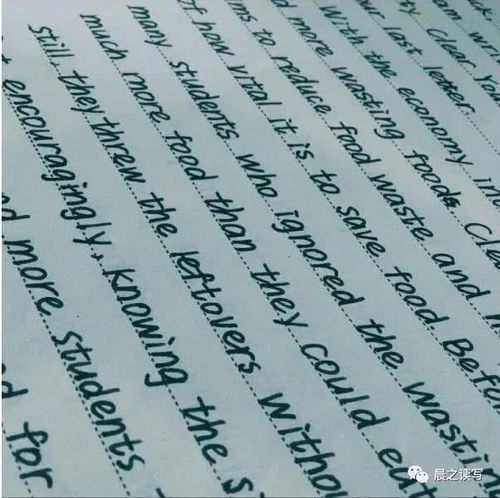 am wri
ty. Clear. You
ur last letter.
With the economy im
d more wasting foods. Clea
ms to reduce food waste and
of how vital it is to save food. Befo
many students who ignored the wasti
much more food than they could ea
Still, they threw the leftovers withou
t encouragingly, knowing the s
d more students
d for
晨之读写